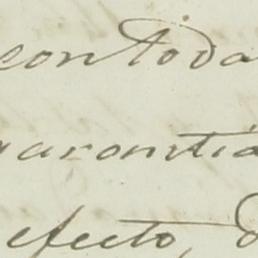 con toda
garantia
efecto,